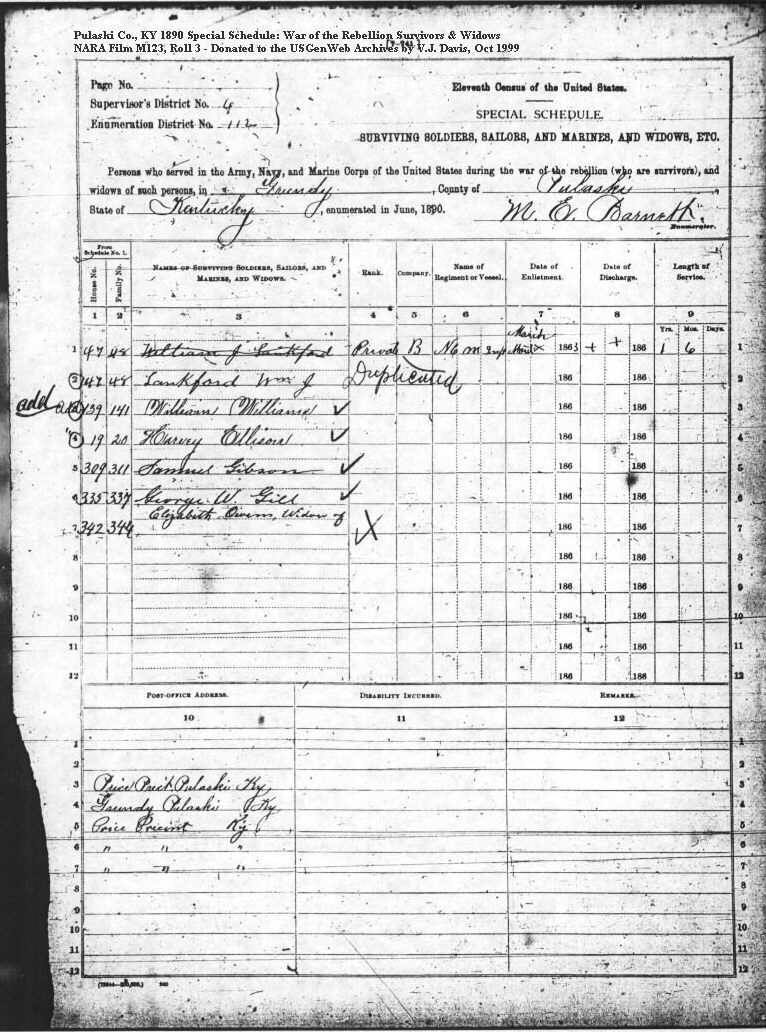 Pulaski Co., KY 1890 Special Schedule: War of the Rebellion Survivors & Widows
NARA Film M123, Roll 3 - Donated to the USGenWeb Archives by V.J. Davis, Oct 1999
Page No.
Supervisor's District No. 4
Enumeration District No. 112
Eleventh Census of the United States.
SPECIAL SCHEDULE.
SURVIVING SOLDIERS, SAILORS, AND MARINES, AND WIDOWS, ETC.
Persons who served in the Army, Navy, and Marine Corps of the United States during the war of the rebellion (who are survivors), and
widows of such persons, in Grundy, County of Pulaski,
State of Kentucky, enumerated in June, 1890. M. E. Barnett,
Enumerator.
From Schedule No. 1.
House No. Family No. Names of Surviving Soldiers, Sailors, and Marines, and Widows. Rank. Company. Name of Regiment or Vessel. Date of Enlistment. Date of Discharge. Length of Service.
1 2 3 4 5 6 7 8 9
Yrs. Mos. Days.
1 47 48 William J Lankford Private B March 1863 186 1 6 1
2 47 48 Lankford Wm J Duplicated 186 186 2
add add 3 139 141 William Williams ✓ 186 186 3
4 19 20 Harvey Ellison ✓ 186 186 4
5 309 311 Samuel Gibson ✓ 186 186 5
6 335 337 George W. Gill ✓ 186 186 6
7 342 344 Elizabeth Owens, Widow of X 186 186 7
8 186 186 8
9 186 186 9
10 186 186 10
11 186 186 11
12 186 186 12
Post-Office Address. Disability Incurred. Remarks.
10 11 12
1 1
2 2
3 Price Prect Pulaski Ky 3
4 Grundy Pulaski Ky 4
5 Price Precint Ky 5
6 " " " 6
7 " " " 7
8 8
9 9
10 10
11 11
12 12